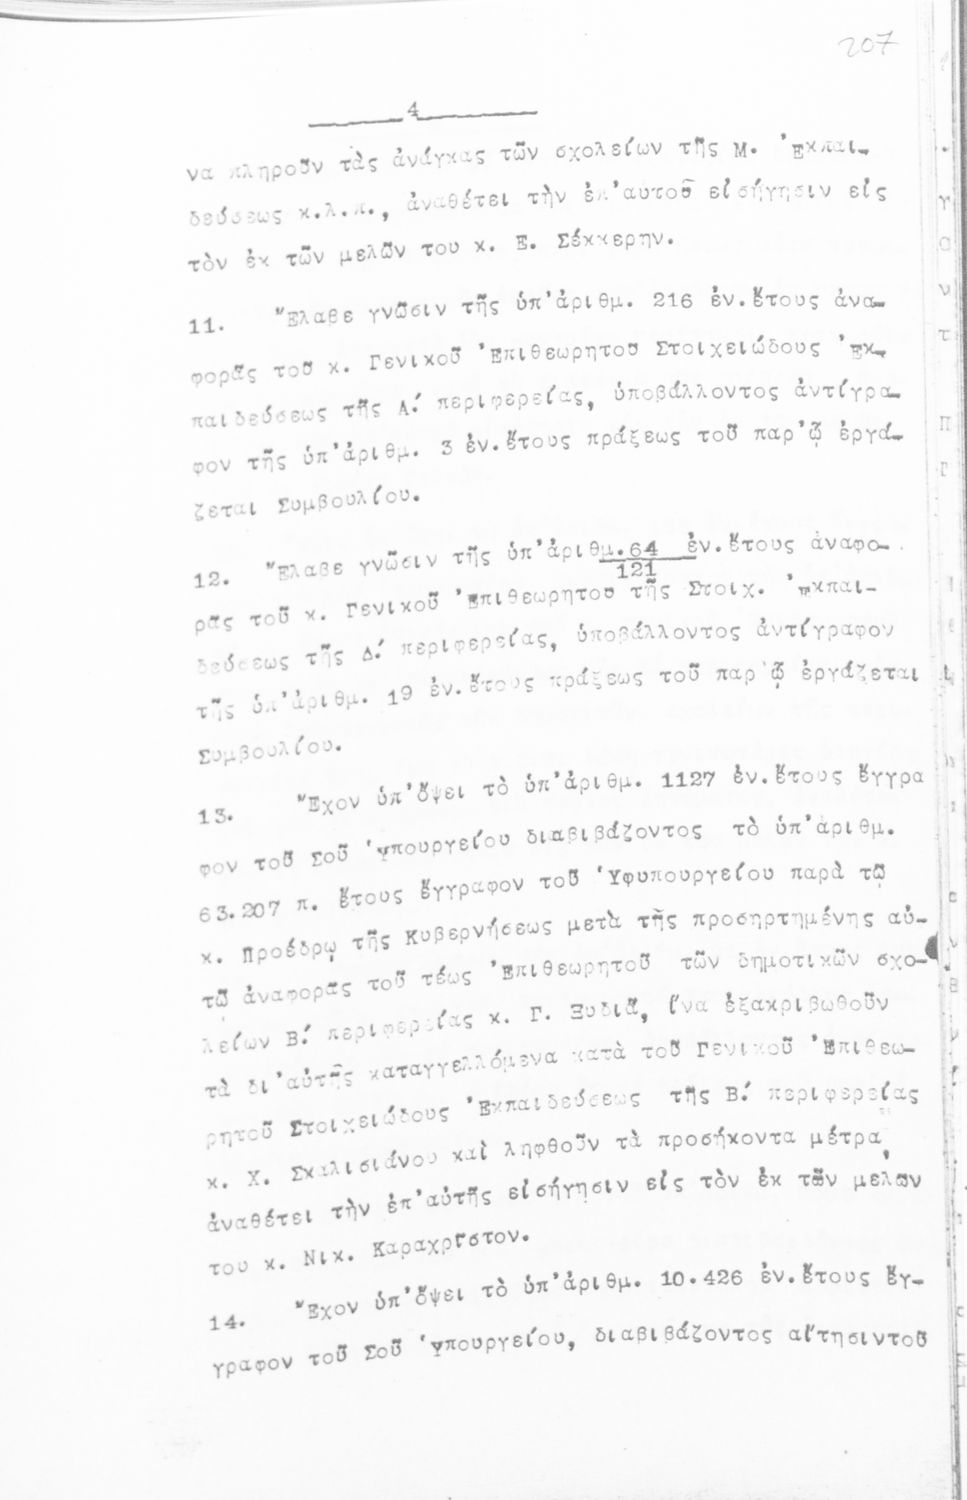 207
4
να πληροῦν τὰς ἀνάγκας τῶν σχολείων τῆς Μ. Ἐκπαι-
δεύσεως κ.λ.π., ἀναθέτει τὴν ἐπ'αυτοῦ εἰσήγησιν εἰς
τὸν ἐκ τῶν μελῶν του κ. Ε. Σέκκερην.
11. Ἔλαβε γνῶσιν τῆς ὑπ'ἀριθμ. 216 ἐν.ἔτους ἀνα-
φορᾶς τοῦ κ. Γενικοῦ Ἐπιθεωρητοῦ Στοιχειώδους Ἐκ-
παιδεύσεως τῆς Α΄. περιφερείας, ὑποβάλλοντος ἀντίγρα-
φον τῆς ὑπ'ἀριθμ. 3 ἐν.ἔτους πράξεως τοῦ παρ'ᾧ ἐργά-
ζεται Συμβουλίου.
12. Ἔλαβε γνῶσιν τῆς ὑπ'ἀριθμ. 64 ἐν.ἔτους ἀναφο-
121
ρᾶς τοῦ κ. Γενικοῦ Ἐπιθεωρητου τῆς Στοιχ. Ἐκπαι-
δεύσεως τῆς Δ΄. περιφερείας, ὑποβάλλοντος ἀντίγραφον
τῆς ὑπ'ἀριθμ. 19 ἐν.ἔτους πράξεως τοῦ παρ'ᾧ ἐργάζεται
Συμβουλίου.
13. Ἔχον ὑπ'ὄψει τὸ ὑπ'ἀριθμ. 1127 ἐν.ἔτους ἔγγρα
φον τοῦ Σοῦ Ὑπουργείου διαβιβάζοντος τὸ ὑπ'ἀριθμ.
63.207 π. ἔτους ἔγγραφον τοῦ Ὑφυπουργείου παρὰ τῷ
κ. Προέδρῳ τῆς Κυβερνήσεως μετὰ τῆς προσηρτημένης αὐ-
τῷ ἀναφορᾶς τοῦ τέως Ἐπιθεωρητοῦ τῶν δημοτικῶν σχο-
λείων Β΄. περιφερείας κ. Γ. Ξυδιᾶ, ἵνα ἐξακριβωθοῦν
τὰ δι'αὐτῆς καταγγελλόμενα κατὰ τοῦ Γενικοῦ Ἐπιθεω-
ρητοῦ Στοιχειώδους Ἐκπαιδεύσεως τῆς Β΄. περιφερείας
κ. Χ. Σκαλισιάνου καὶ ληφθοῦν τὰ προσήκοντα μέτρα,
ἀναθέτει τὴν ἐπ'αὐτῆς εἰσήγησιν εἰς τὸν ἐκ τῶν μελῶν
του κ. Νικ. Καραχρῆστον.
14. Ἔχον ὑπ'ὄψει τὸ ὑπ'ἀριθμ. 10.426 ἐν.ἔτους ἔγ-
γραφον τοῦ Σοῦ Ὑπουργείου, διαβιβάζοντος αἴτησιντοῦ